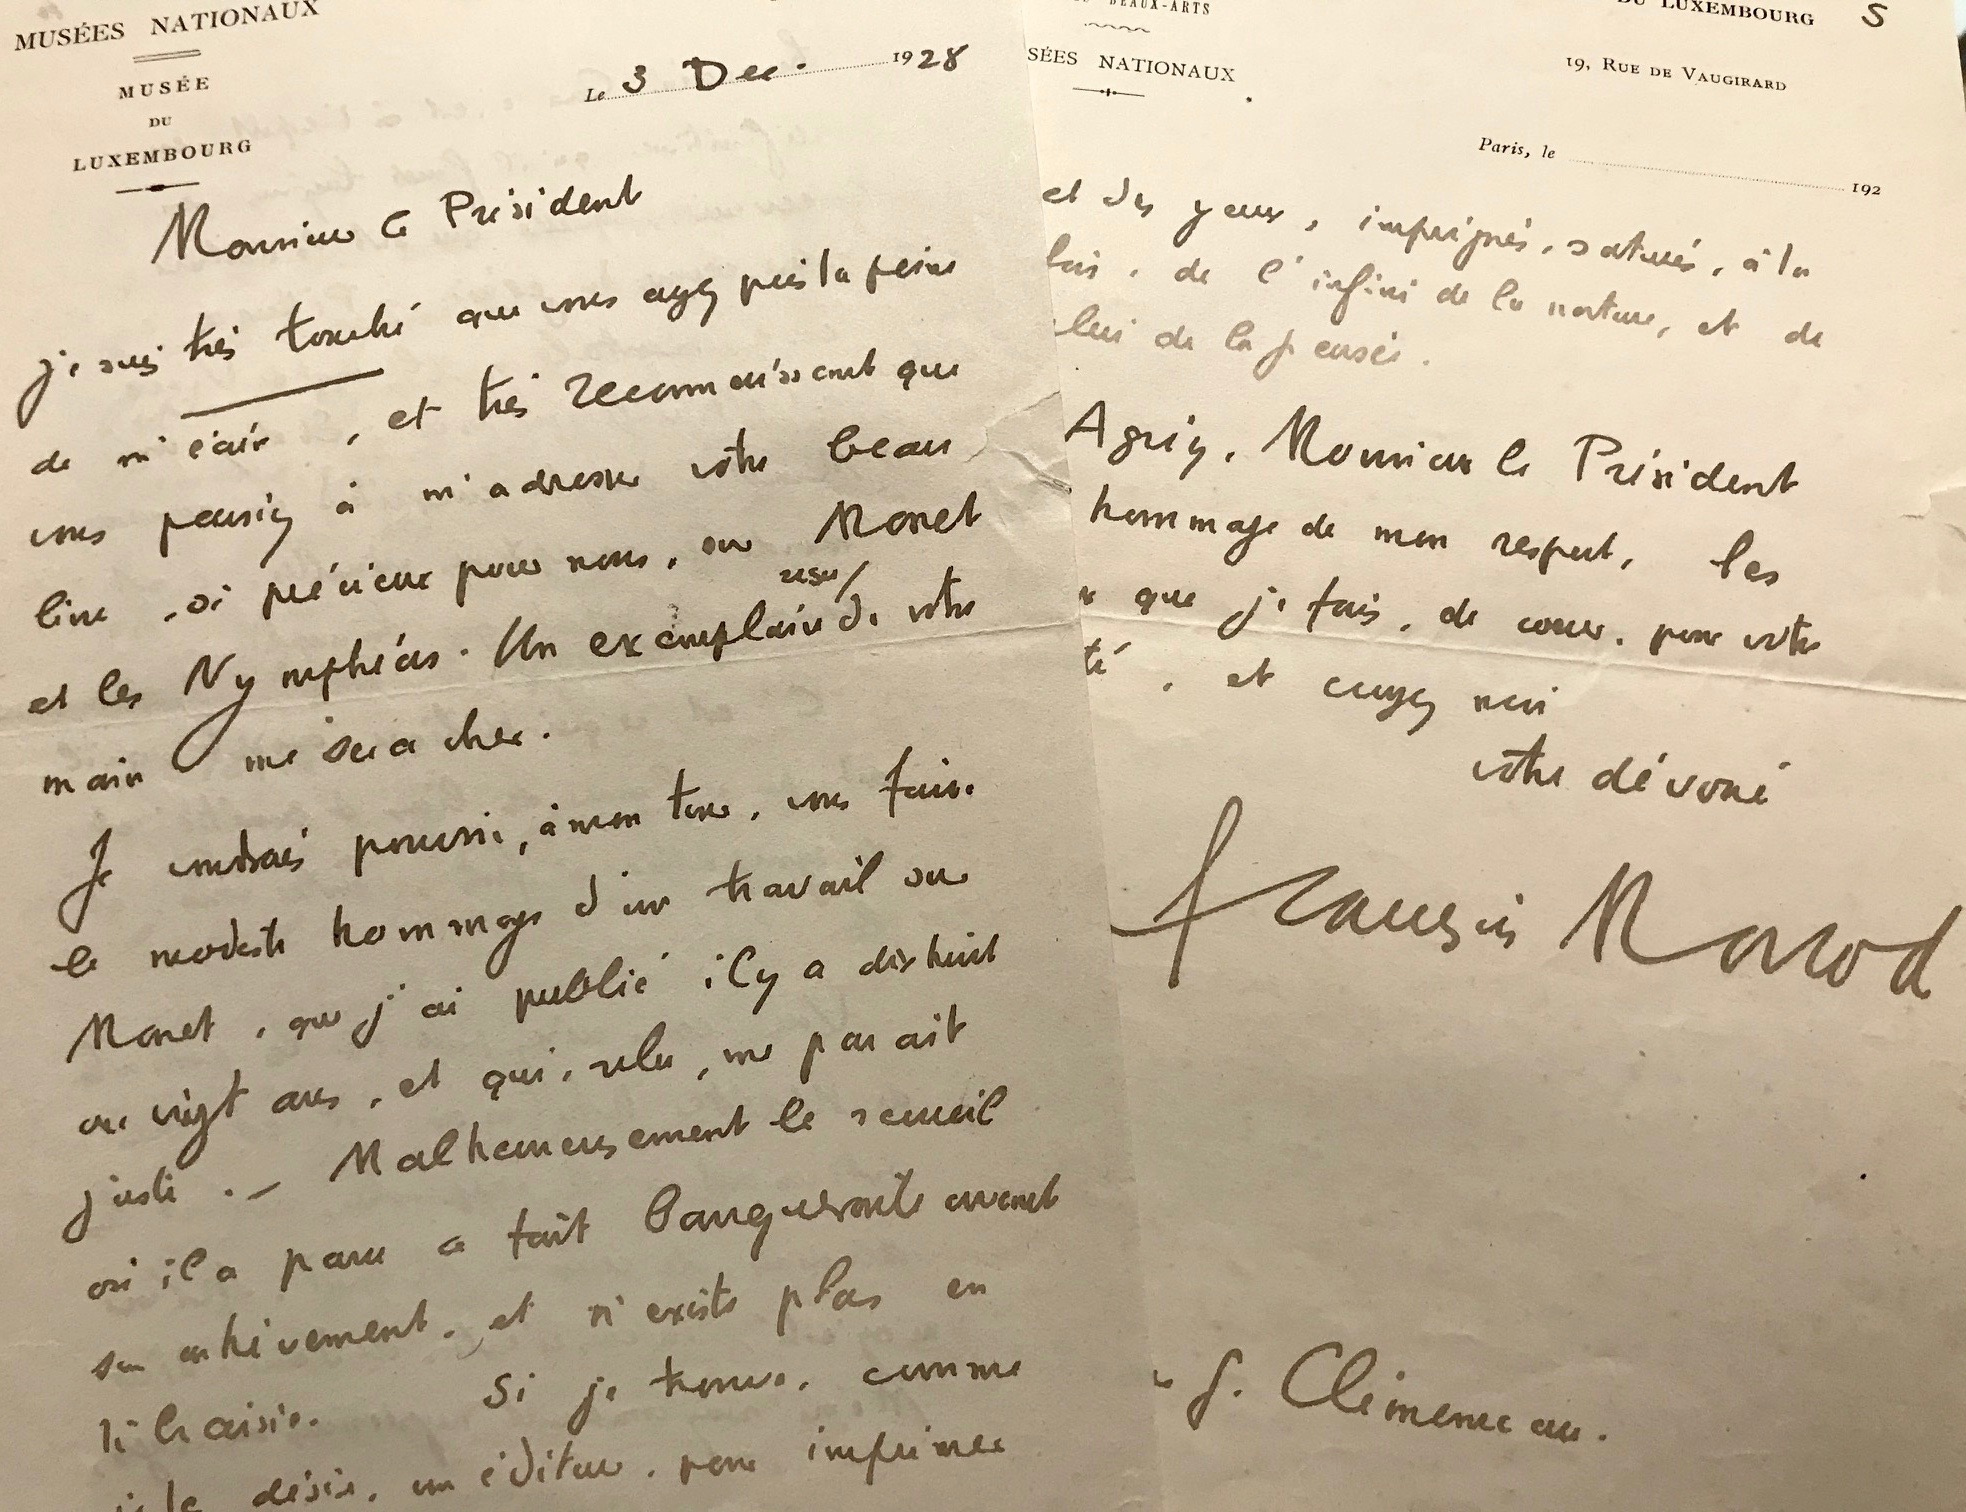 MUSÉES NATIONAUX
MUSÉE
DU
LUXEMBOURG
Le 3 Dec. 1928
Monsieur le Président
je suis très touché que vous ayez pris la peine
de m'écrire, et très reconnaissant que
vous pensiez à m'adresser votre beau
livre, si précieux pour nous, sur Monet
et les Nymphéas. Un exemplaire de votre
main me sera cher.
Je voudrais pouvoir, à mon tour, vous faire
le modeste hommage d'un travail sur
Monet, que j'ai publié il y a dix huit
ou vingt ans, et qui, relu, me parait
juste. – Malheureusement le recueil
où il a paru a fait banqueroute avant
son achèvement, et n'existe plus en
librairie. Si je trouve, comme
je le désire, un éditeur, pour imprimer
BEAUX-ARTS
SÉES NATIONAUX
DU LUXEMBOURG
5
19, RUE DE VAUGIRARD
Paris, le 192
et des yeux, imprégnés, saturés, à la
fois, de l'infini de la nature, et de
celui de la pensée.
Agréez, Monsieur le Président
hommage de mon respect, les
que je fais, de coeur, pour votre
té, et croyez moi
votre dévoué
G. Clémenceau.